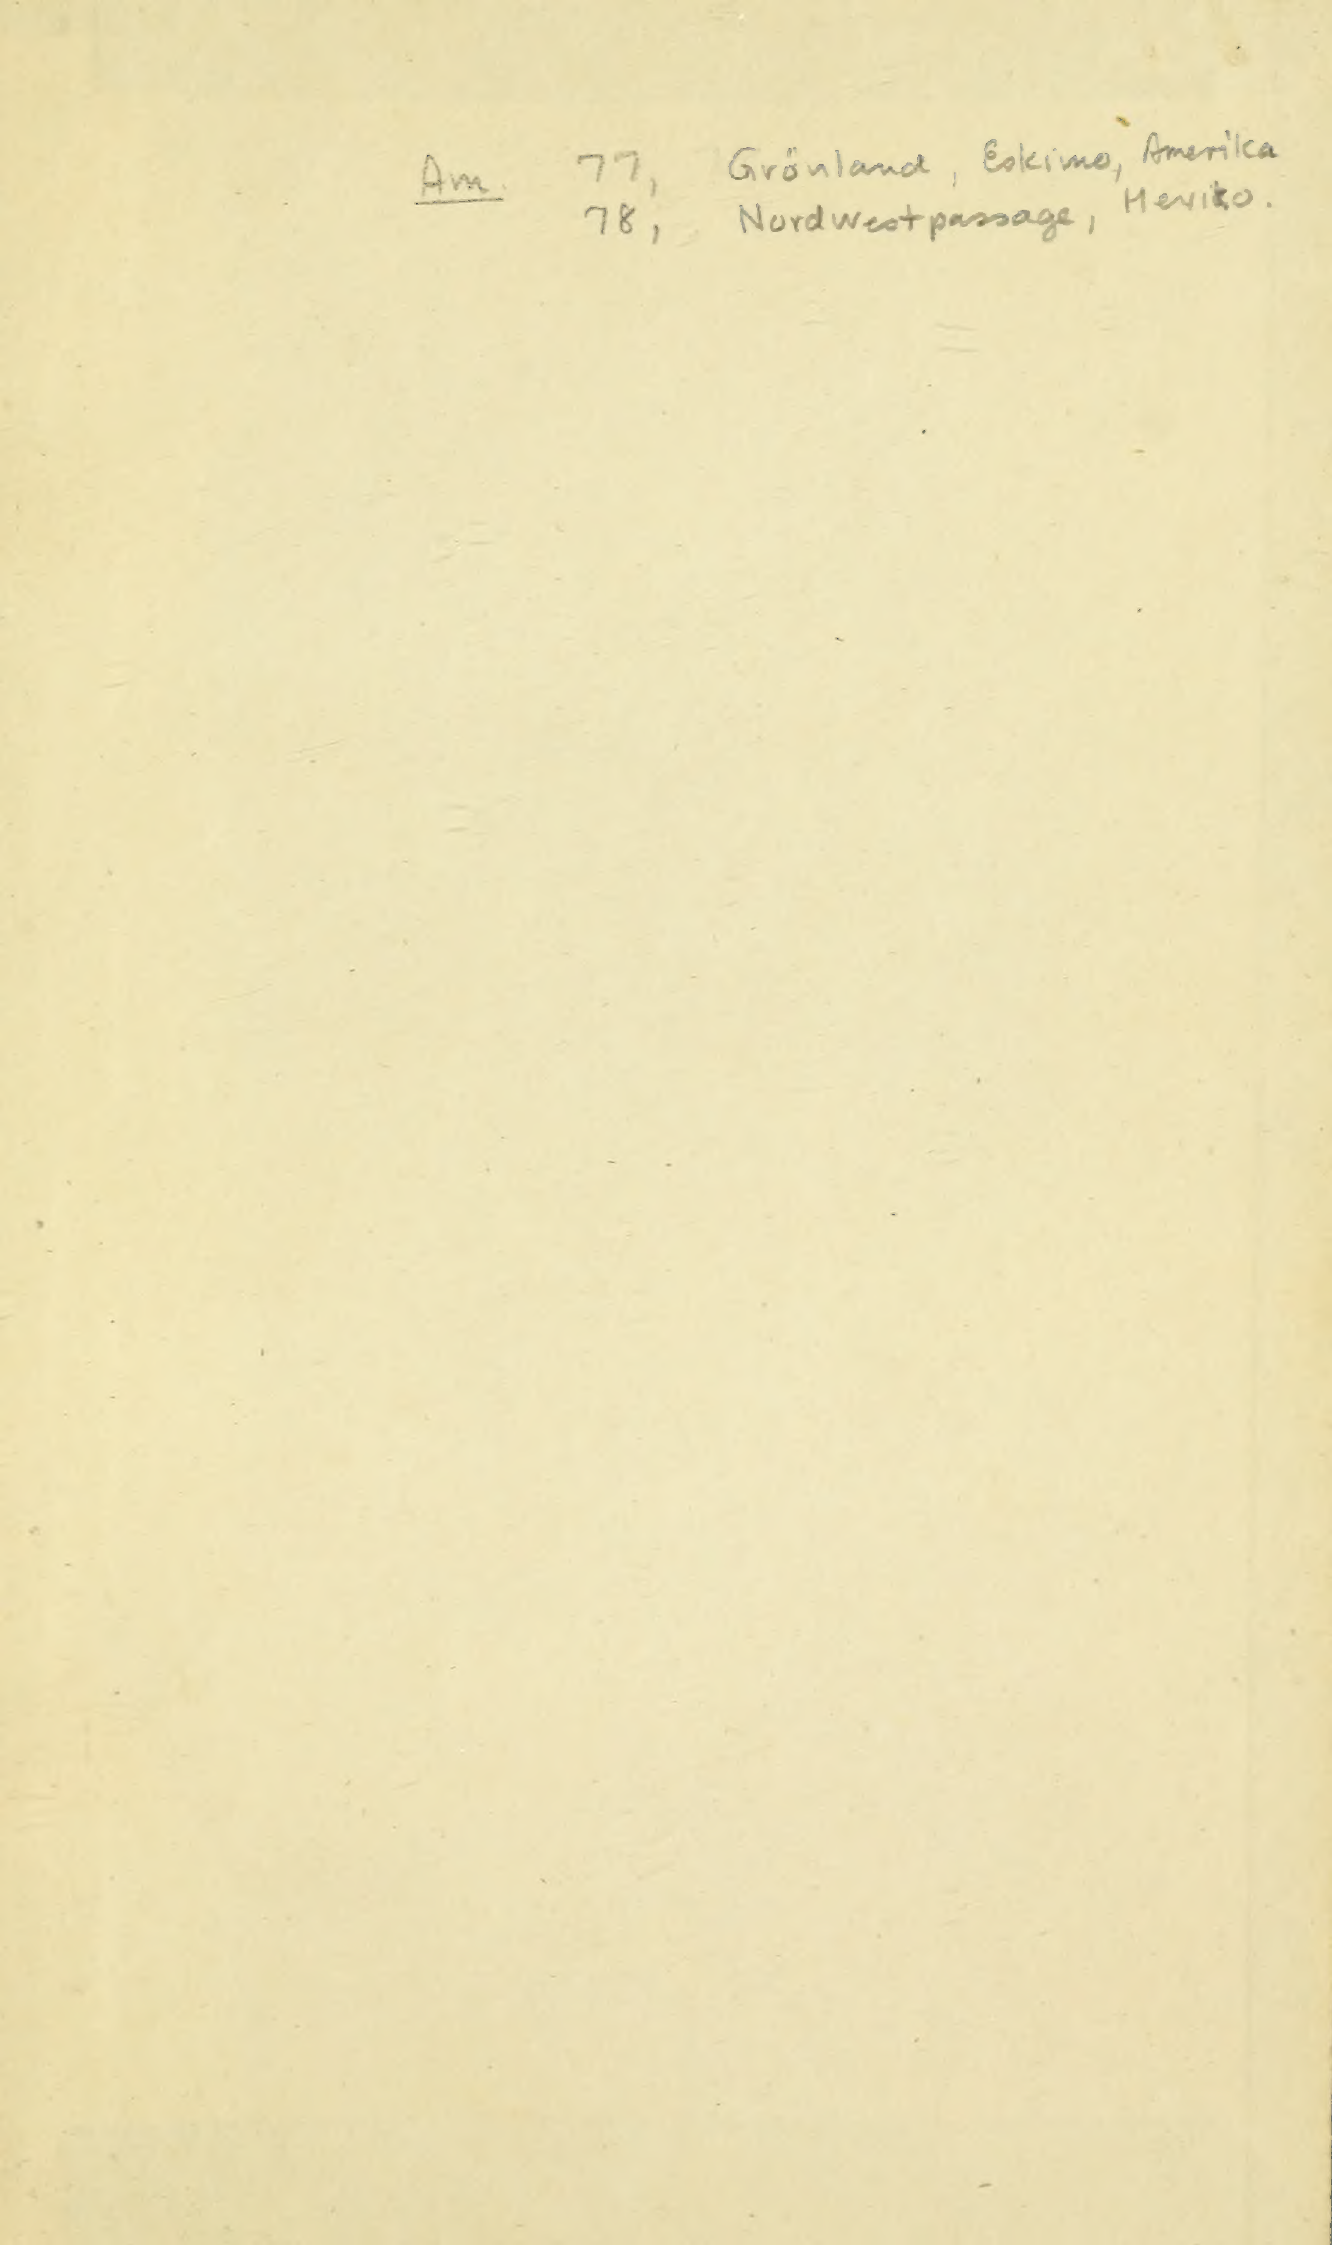 Am. 77, Grönland, Eskimo, Amerika
78, Nordwestpassage, Mexiko.